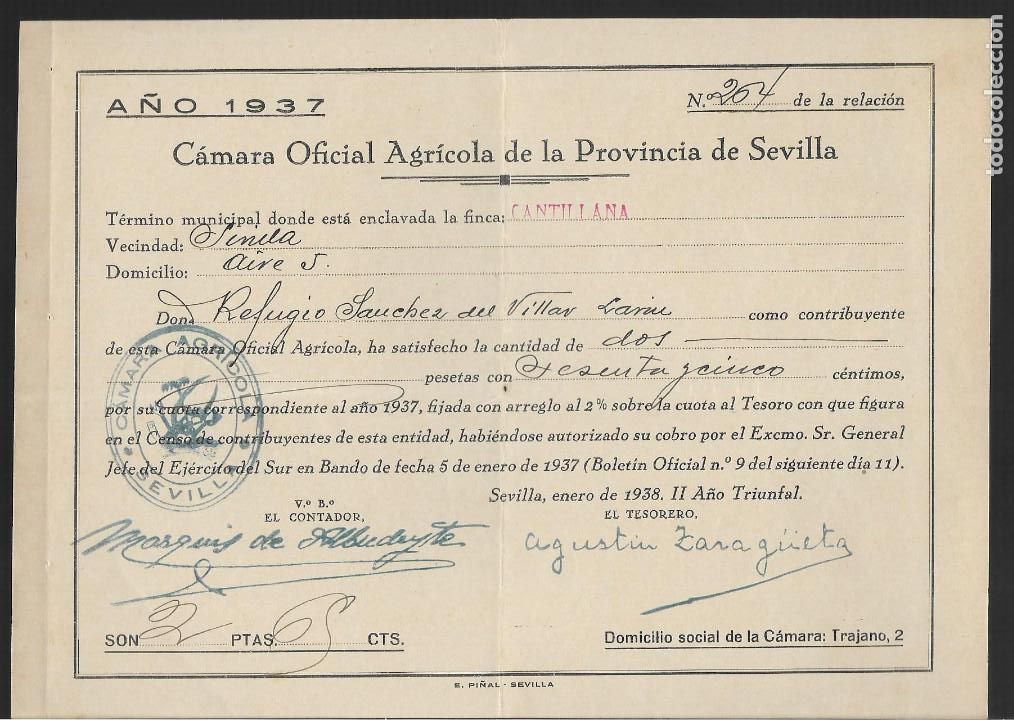 AÑO 1937
N.º 264 de la relación
Cámara Oficial Agrícola de la Provincia de Sevilla
Término municipal donde está enclavada la finca: CANTILLANA
Vecindad: Sevilla
Domicilio: Aire 5.
Don Refugio Sanchez del Villar como contribuyente
de esta Cámara Oficial Agrícola, ha satisfecho la cantidad de dos
pesetas con sesenta y cinco céntimos,
por su cuota correspondiente al año 1937, fijada con arreglo al 2% sobre la cuota al Tesoro con que figura
en el Censo de contribuyentes de esta entidad, habiéndose autorizado su cobro por el Excmo. Sr. General
Jefe del Ejército del Sur en Bando de fecha 5 de enero de 1937 (Boletín Oficial n.º 9 del siguiente día 11).
CÁMARA AGRÍCOLA
SEVILLA
Sevilla, enero de 1938. II Año Triunfal.
V.º B.º
EL CONTADOR,
EL TESORERO,
Marquis de Albudeyte
Agustin Zaragüeta
SON 2 PTAS. 65 CTS.
Domicilio social de la Cámara: Trajano, 2
E. PIÑAL - SEVILLA
todocoleccion